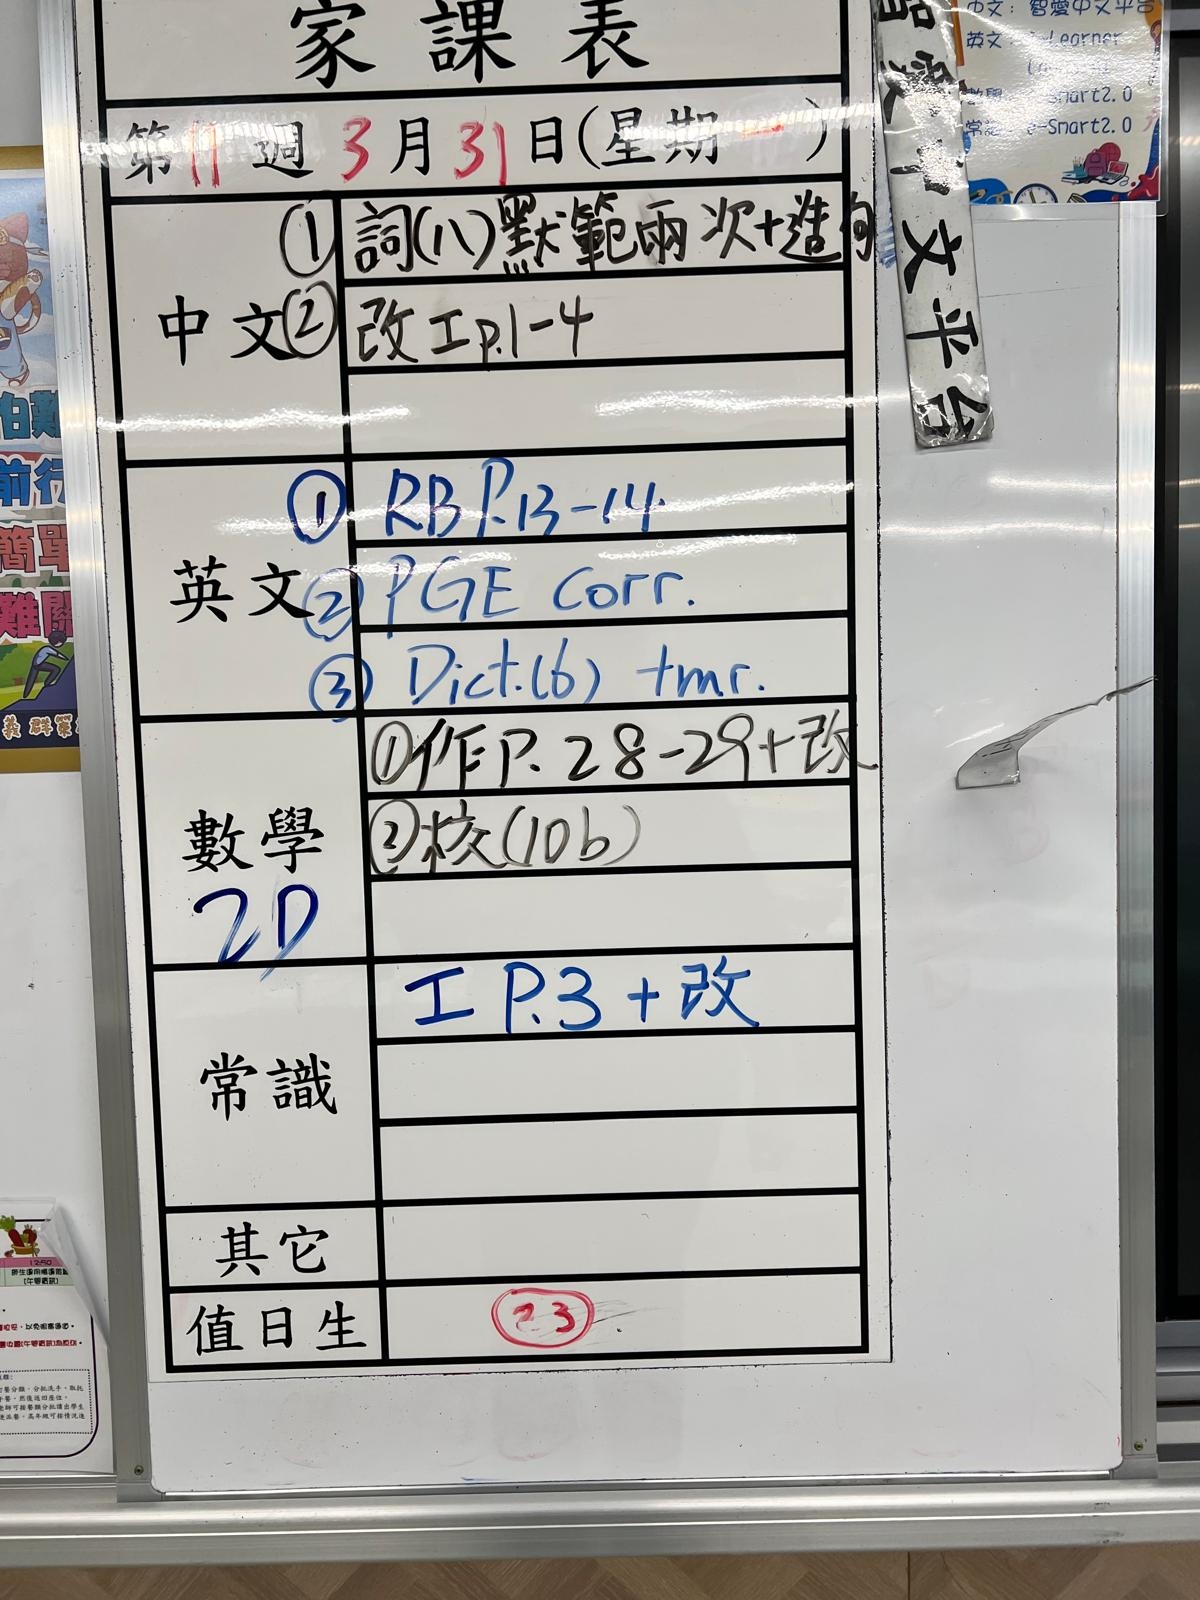 家課表
第11週3月31日(星期一)
中文
①詞(八)默範兩次+造句
②改工p.1-4
英文
① RB P.13-14
② PGE Corr.
③ Dict.(6) tmr.
數學
2D
①作P.28-29+改
②校(10b)
常識
工 P.3+改
其它
值日生
23
智愛中文平台
中文：智愛中文平台
英文：
數學：
常識：e-Smart2.0
前行
簡單
難關
12:50